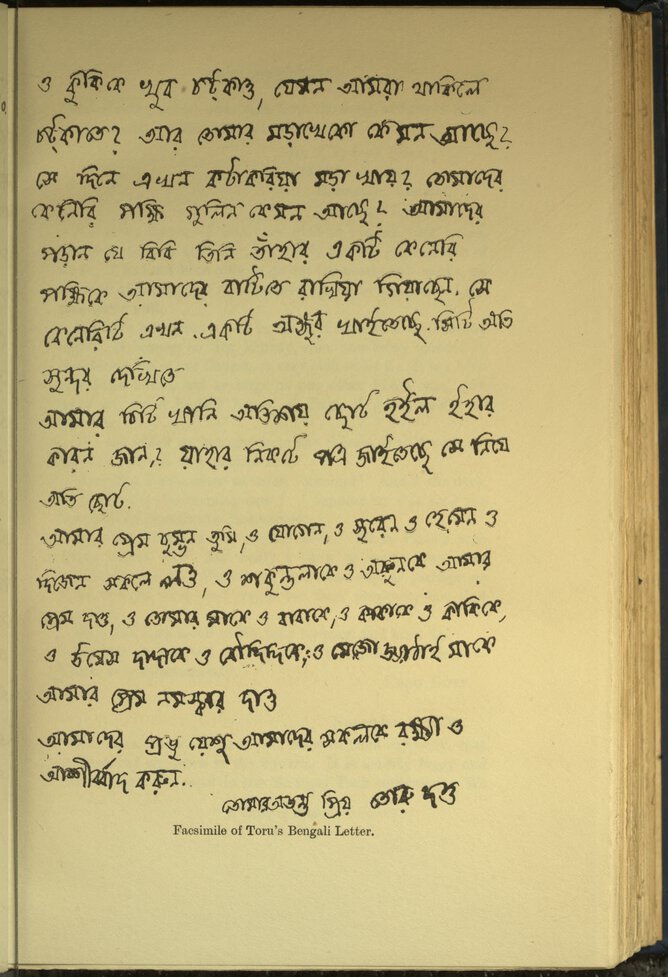 ও কুকিকে খুব চট্কাও, যেমন আমরা থাকিলে
চট্কাতে? আর তোমার মড়াখেকো কেমন আছে?
সে দিনে এখন কটাকরিয়া মড়া খায়? তোমাদের
কেনেরি পক্ষি গুলিন কেমন আছে? আমাদের
পড়ান যে বিবি তিনি তাঁহার একটি কেনেরি
পক্ষিকে আমাদের বাটিতে রাখিয়া গিয়াছেন. সে
কেনেরিটি এখন একটি আঙ্গুর খাইতেছে. সিটি অতি
সুন্দর দেখিতে
আমার চিটি খানি অতিশয় ছোট হইল ইহার
কারন জান,? যাহার নিকটে পত্র জাইতেছে সে নিযে
অতি ছোট.
আমার প্রেম চুম্বন তুমি, ও যোগেন, ও সুরেন ও হেমেন ও
দিজেন সকলে লও, ও শকুন্তলাকে ও অরুনকে আমার
প্রেম দাও, ও তোমার মাকে ও বাবাকে, ও কাকাকে ও কাকিকে,
ও উমেস দাদাকে ও বৌদিদিকে, ও মেজো জ্যাঠাই মাকে
আমার প্রেম নমস্কার দাও
আমাদের প্রভু যেশু আমাদের সকলকে রক্ষা ও
আশীর্ব্বাদ করুন.
তোমার প্রিয় তোরু দত্ত
Facsimile of Toru's Bengali Letter.